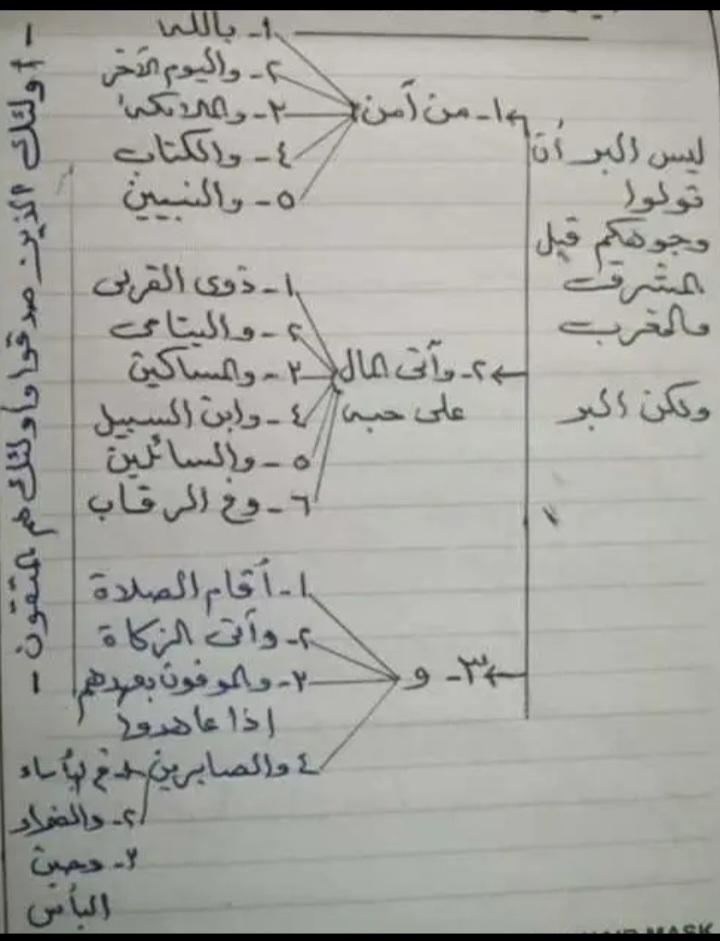 ليس البر أن
تولوا
وجوهكم قبل
المشرق
والمغرب
ولكن البر
١- من آمن
١- بالله
٢- واليوم الآخر
٣- والملائكة
٤- والكتاب
٥- والنبيين
٢- وآتى المال
على حبه
١- ذوى القربى
٢- واليتامى
٣- والمساكين
٤- وابن السبيل
٥- والسائلين
٦- وفي الرقاب
٣- و
١- أقام الصلاة
٢- وآتى الزكاة
٣- والموفون بعهدهم
إذا عاهدوا
٤ والصابرين
١- في البأساء
٢- والضراء
٣- وحين
البأس
- أولئك الذين صدقوا وأولئك هم المتقون -
HAIR MASK